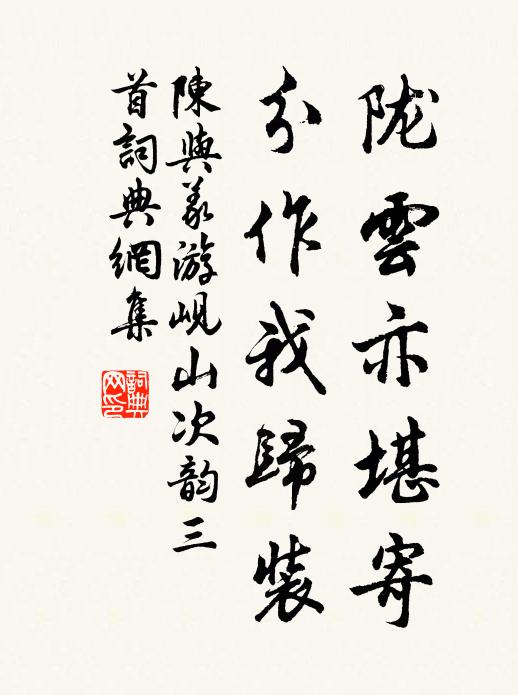 陇雲亦堪寄
分作我歸裝
陳與義游峴山次韵三
首詞典網集
詞典
网印